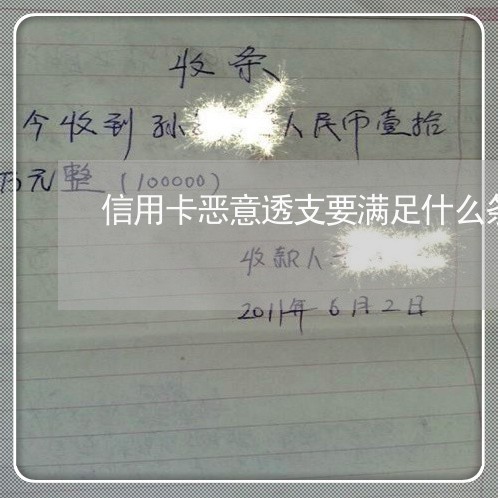 收条
今收到孙 人民币壹拾
万元整(100000)
信用卡恶意透支要满足什么条
收款人
2011年6月2日